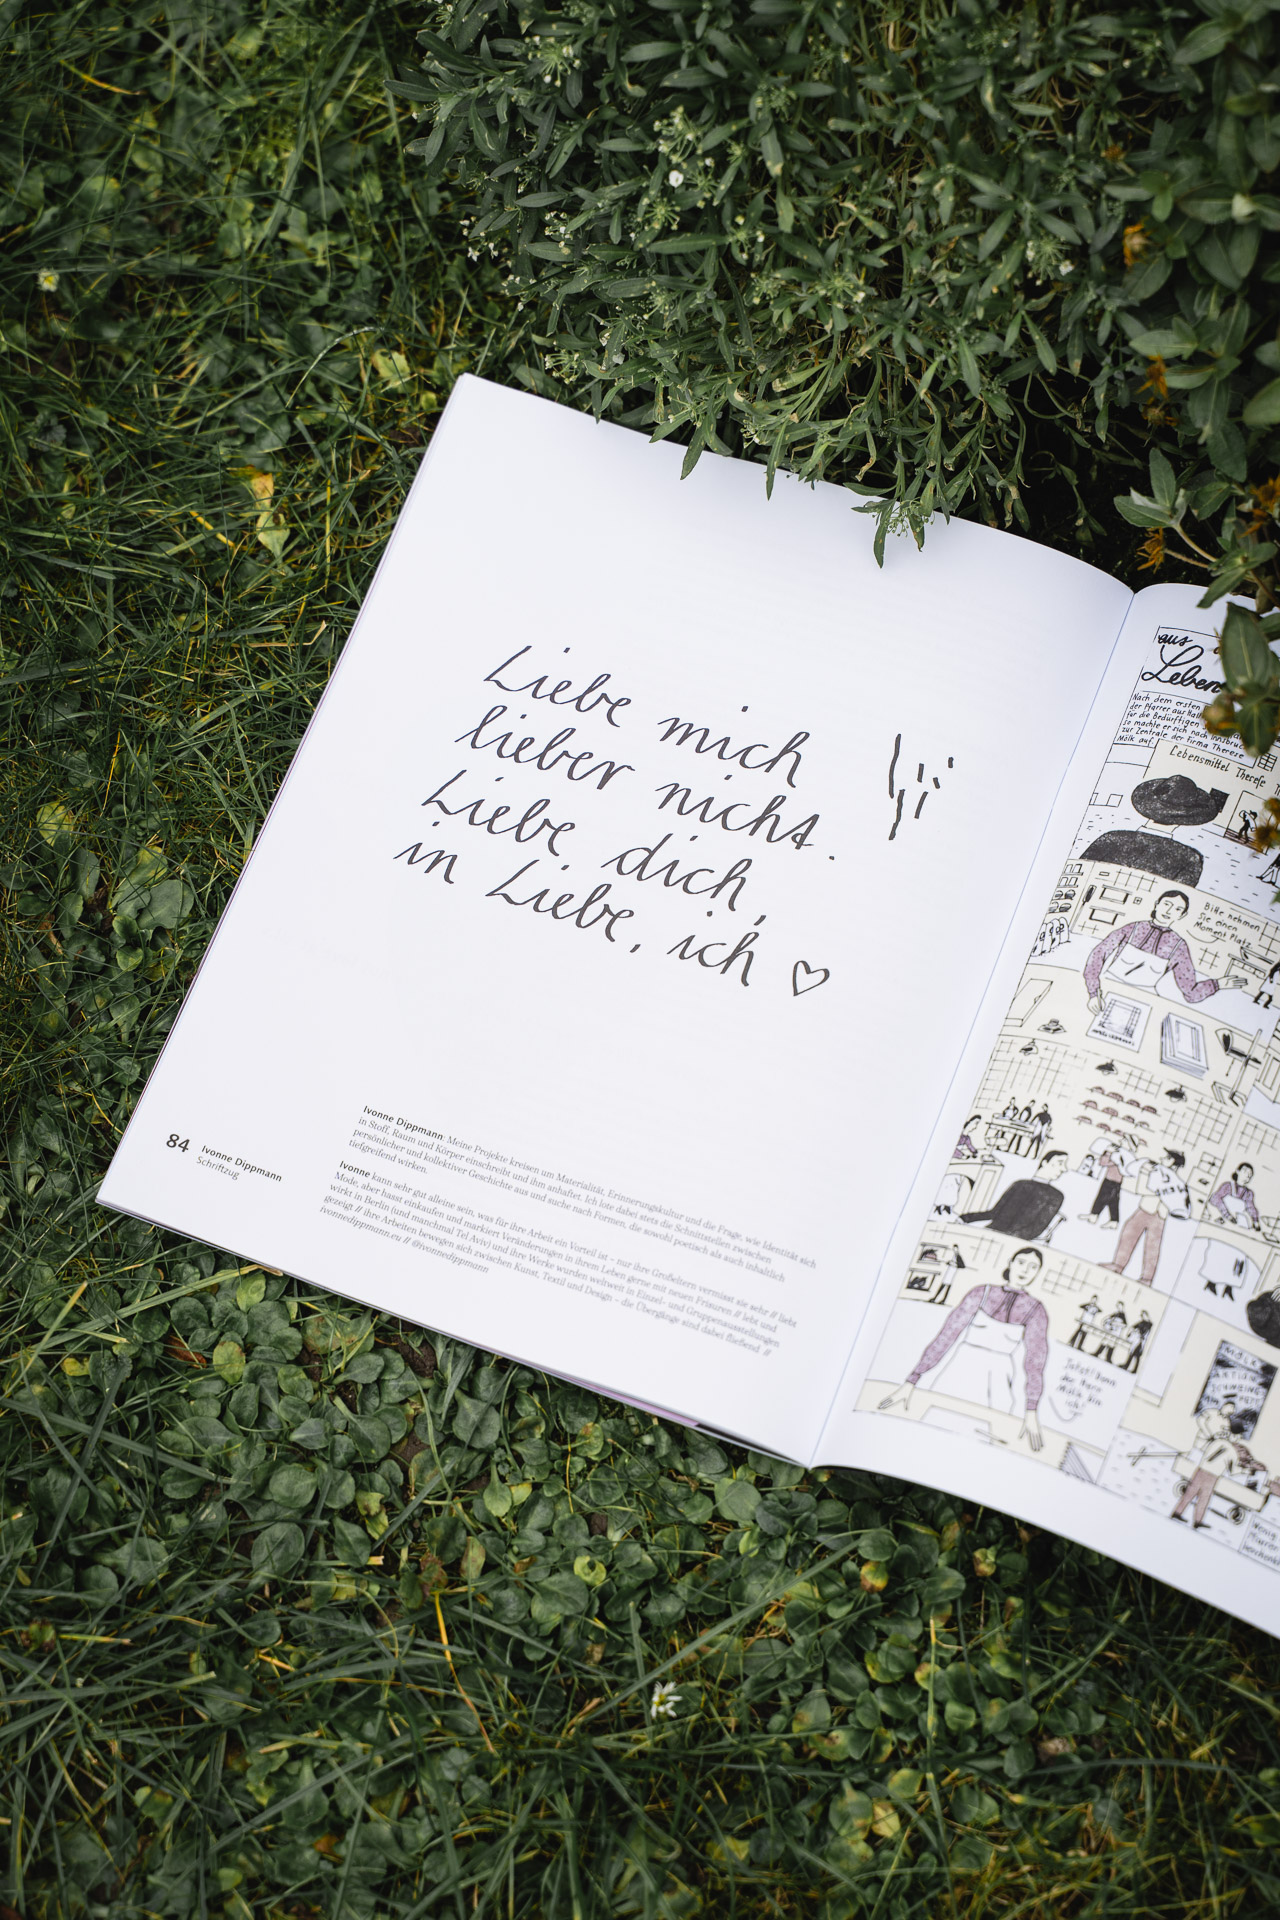 Liebe mich
lieber nicht.
Liebe dich,
in Liebe, ich
84
Ivonne Dippmann
Schriftzug
Ivonne Dippmann: Meine Projekte kreisen um Materialität, Erinnerungskultur und die Frage, wie Identität sich
in Stoff, Raum und Körper einschreibt und ihm anhaftet. Ich lote dabei stets die Schnittstellen zwischen
persönlicher und kollektiver Geschichte aus und suche nach Formen, die sowohl poetisch als auch inhaltlich
tiefgreifend wirken.
Ivonne kann sehr gut alleine sein, was für ihre Arbeit ein Vorteil ist – nur ihre Großeltern vermisst sie sehr // liebt
Mode, aber hasst einkaufen und markiert Veränderungen in ihrem Leben gerne mit neuen Frisuren // lebt und
wirkt in Berlin (und manchmal Tel Aviv) und ihre Werke wurden weltweit in Einzel- und Gruppenausstellungen
gezeigt // ihre Arbeiten bewegen sich zwischen Kunst, Textil und Design – die Übergänge sind dabei fließend. //
ivonnedippmann.eu // @ivonnedippmann
aus
Leben
Nach dem ersten
der Pfarrer aus Hall
für die Bedürftigen
so machte er sich nach Innsbruck
zur Zentrale der Firma Therese
Mölk auf.
Lebensmittel Therese
Bitte nehmen
Sie einen
Moment Platz
Jetzt! kann
der Herr
Mölk
ich!
MÖLK
Wenig
Pfarrer